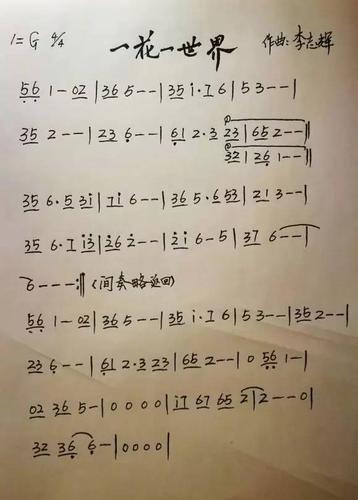 1=G 4/4 一花一世界 作曲:李志辉
5̣6̣ 1-02|36 5--|35 i·7 6|53--|
35 2--|23 6̣--|6̣1 2·3 23|65 2--‖
32|26̣ 1--‖
35 6·5 3i|7i 6--|36 5·6 53|21 3--|
35 6·7 i3̇|3̇6 2̇--|2̇i 6-5|37 6--|
6---:‖(间奏略返回)
5̣6̣ 1-02|36 5--|35 i·7 6|53--|35 2--|
23 6̣--|6̣1 2·3 23|65 2--|0 5̣6̣ 1-|
02 36 5-|0000|i7 67 65 2|2--0|
32 36̣ 6̣-|0000|